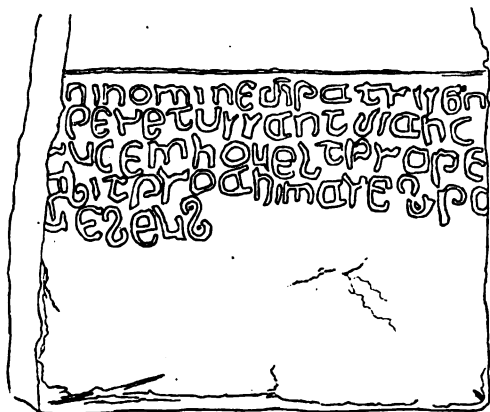 ninominedipatris
peretussantdianc
ucemhoueltprope
abitproanimarespa
reseus